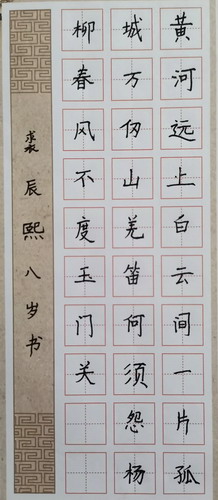 黄河远上白云间一片孤
城万仞山羌笛何须怨杨
柳春风不度玉门关
裘辰熙八岁书